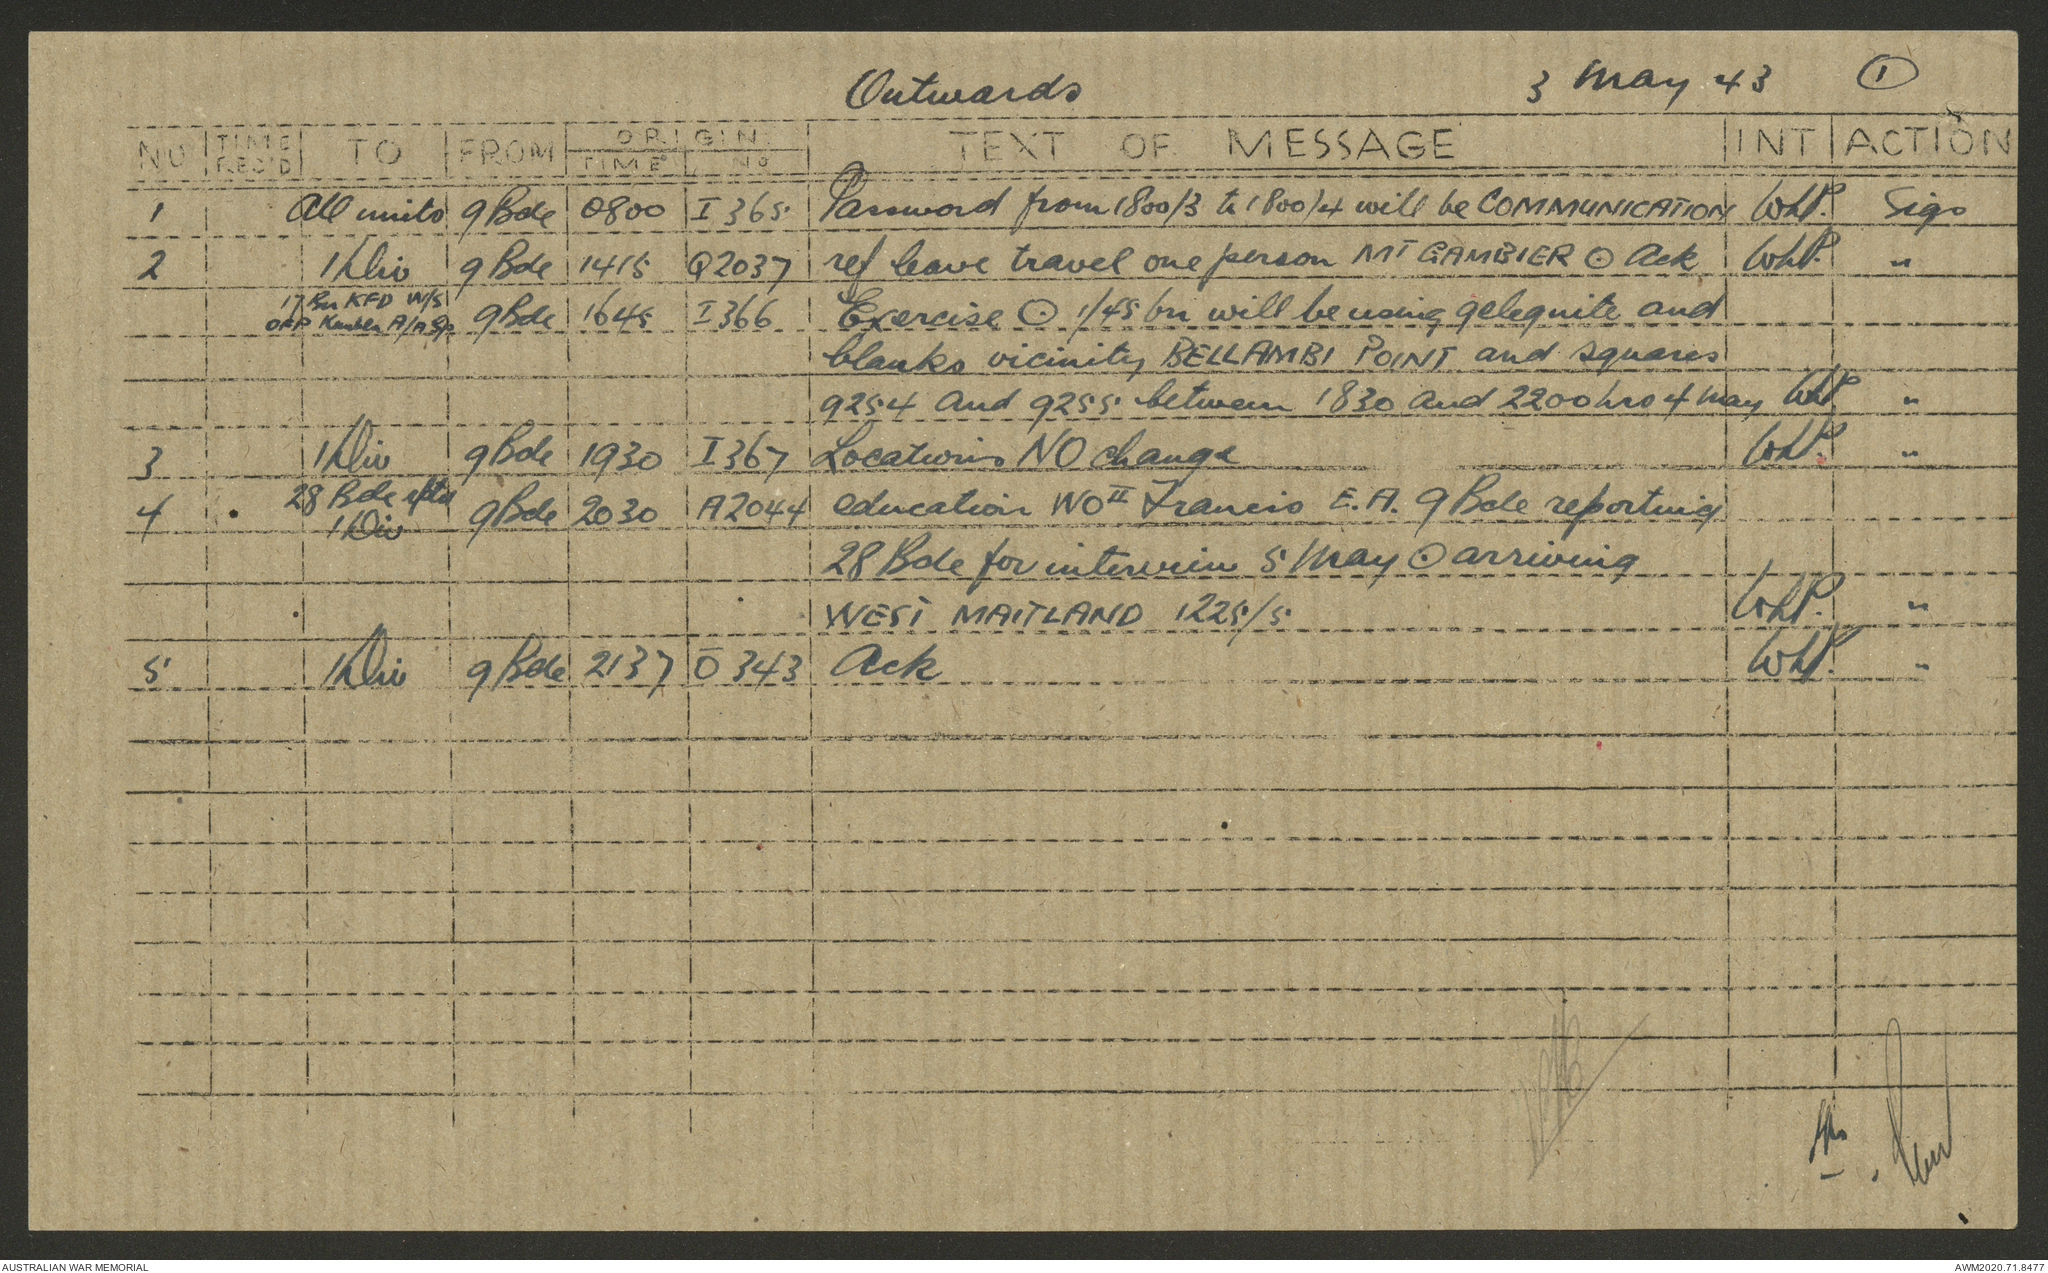 Outwards 3 May 43 1
NO TIME REC'D TO FROM ORIGIN TIME No TEXT OF MESSAGE INT ACTION
1 All units 9 Bde 0800 I 365 Password from 1800/3 to 1800/4 will be COMMUNICATION WhP. Sigs
2 1 Div 9 Bde 1415 Q2037 ref leave travel one person MT GAMBIER ⊙ Ack WhP. "
17 Bn KFD W/S
OPP Kembla A/A Gp 9 Bde 1645 I 366 Exercise ⊙ 1/45 bn will be using geleqnite and
blanks vicinity BELLAMBI POINT and squares
9254 and 9255 between 1830 and 2200 hrs 4 May WhP "
3 1 Div 9 Bde 1930 I 367 Locations NO change WhP. "
28 Bde rptd
4 1 Div 9 Bde 2030 A2044 education WO II Francis E.A. 9 Bde reporting
28 Bde for interview 5 May ⊙ arriving
WEST MAITLAND 1225/5 WhP. "
5 1 Div 9 Bde 2137 O 343 Ack WhP. "
AUSTRALIAN WAR MEMORIAL AWM2020.71.8477